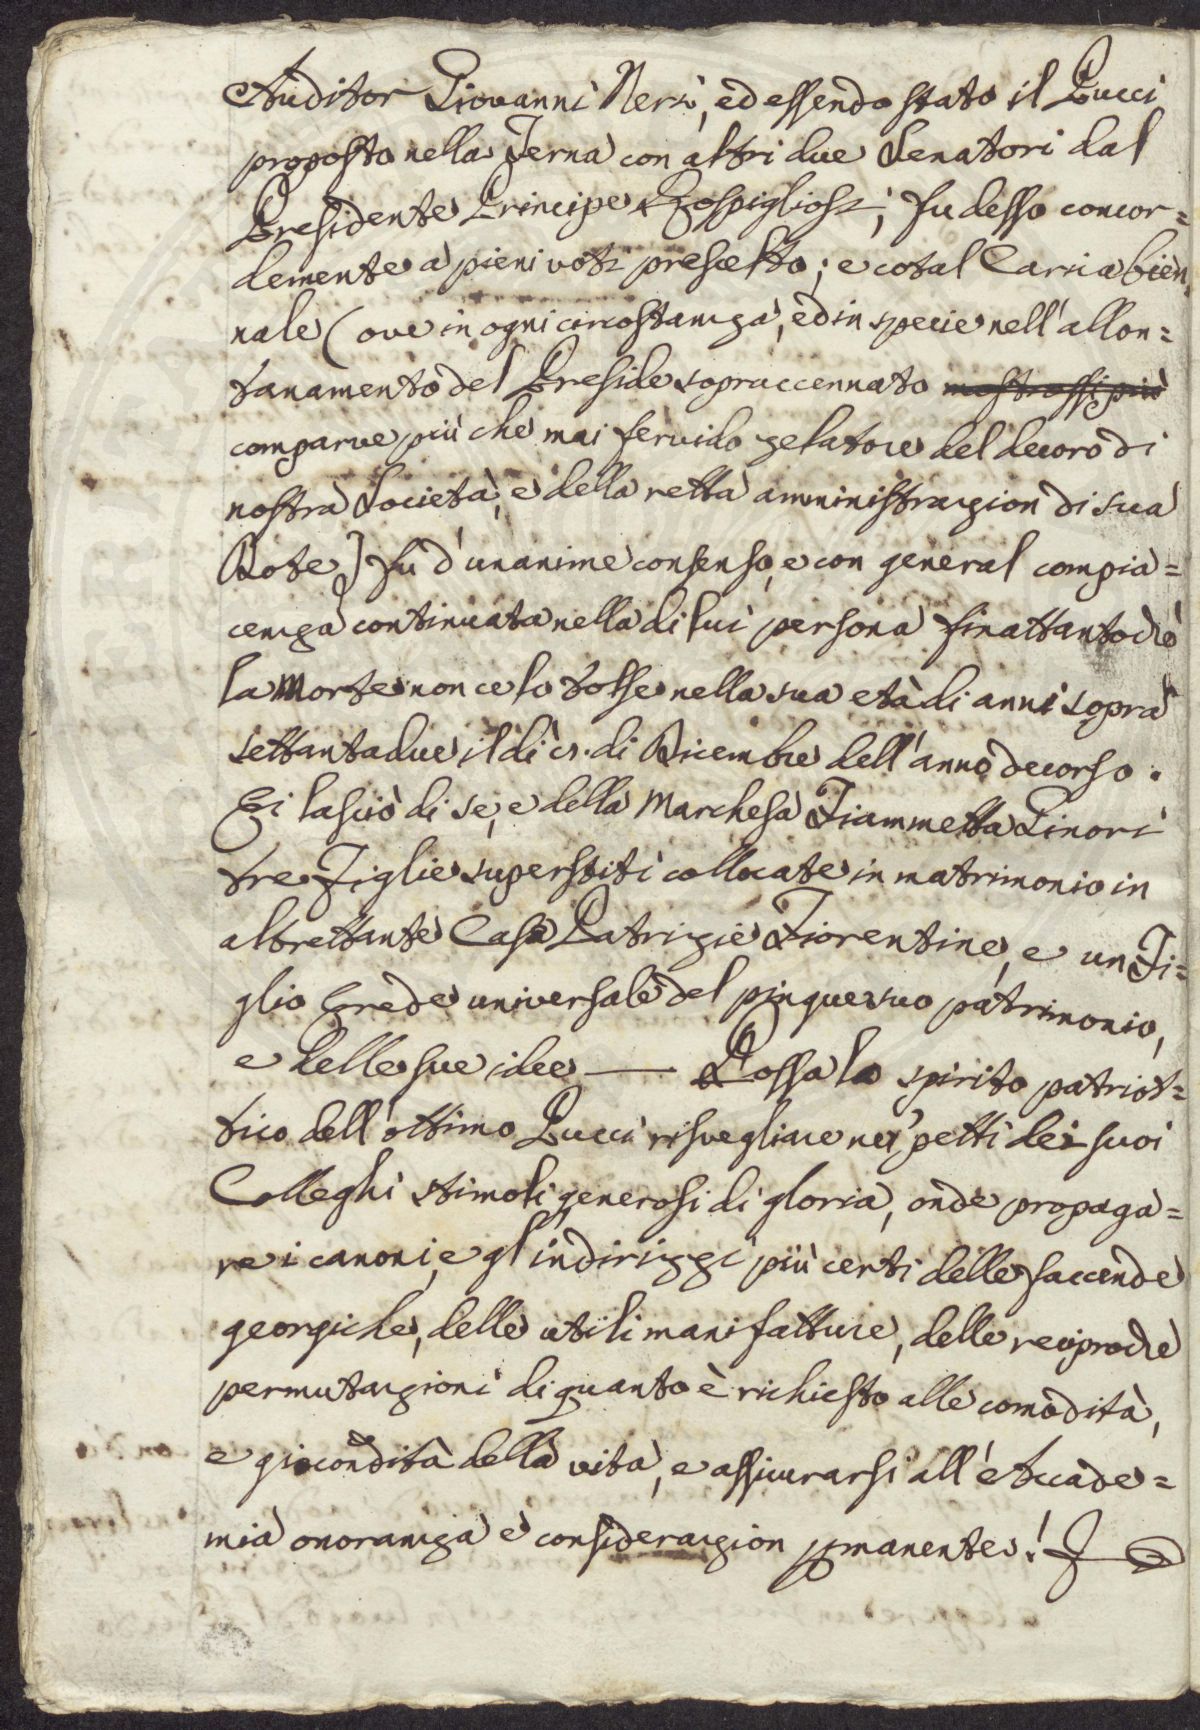 Auditor Giovanni Neri, ed essendo stato il Pucci
proposto nella Terna con altri due Senatori dal
Presidente Principe Rospigliosi; fu desso concor=
demente a pieni voti prescelto; e cotal Carica bien
nale (ove in ogni circostanza, ed in specie nell'allon=
tanamento del Preside sopraccennato mostrossi più
comparve più che mai fervido zelatore del decoro di
nostra Società, e della retta amministrazion di sua
Dote) fu d'unanime consenso, e con general compia=
cenza continuata nella di lui persona finattantochè
la Morte non ce lo tolse nella sua età di anni sopra
settantadue il dì di Dicembre dell'anno decorso.
Ei lasciò di se, e della Marchesa Fiammetta Ginori
tre Figlie superstiti collocate in matrimonio in
altrettante Case Patrizie Fiorentine, e un Fi=
glio Erede universale del pingue suo patrimonio,
e delle sue idee — Possa lo spirito patriot=
tico dell'ottimo Pucci risvegliare nei petti dei suoi
Colleghi stimoli generosi di gloria, onde propaga=
re i canoni, e gl'indirizzi più certi delle faccende
georgiche, delle utili manifatture, delle reciproche
permutazioni di quanto è richiesto alle comodità,
e giocondità della vita, e assicurarsi all'Accade=
mia onoranza e considerazion pmanente!